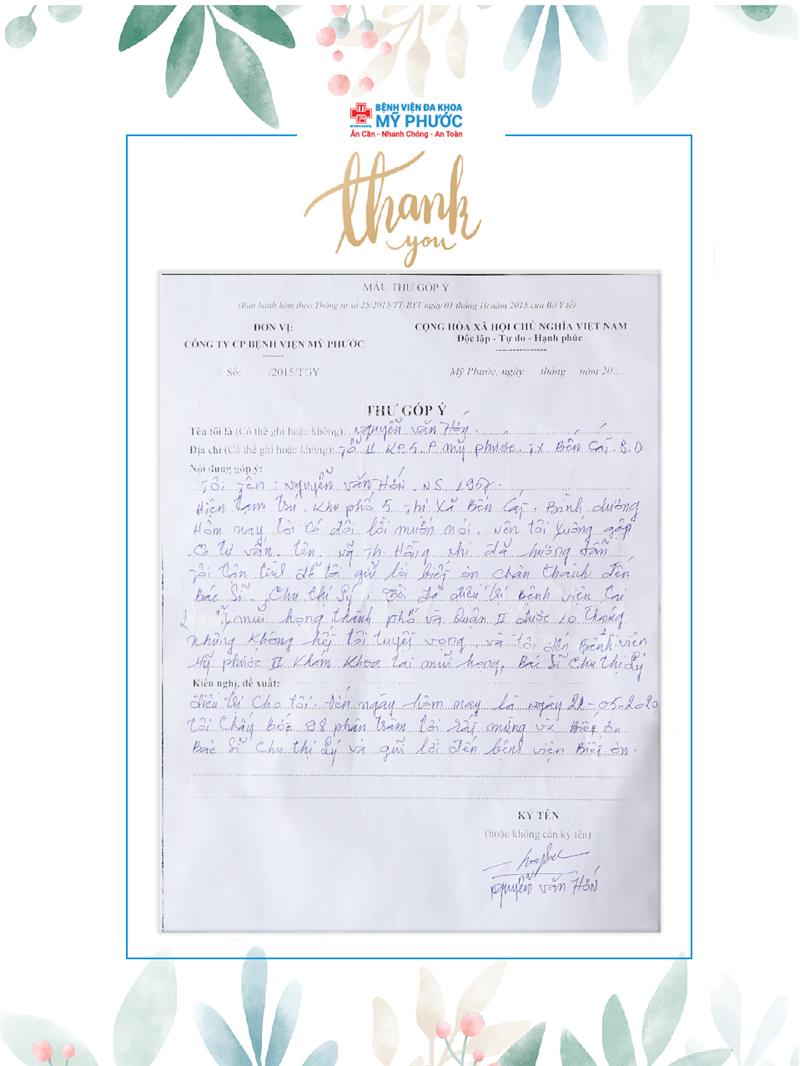 BỆNH VIỆN ĐA KHOA
MỸ PHƯỚC
Ân Cần - Nhanh Chóng - An Toàn
thank
you
MẪU THƯ GÓP Ý
(Ban hành kèm theo Thông tư số 25/2015/TT-BYT ngày 01 tháng 10 năm 2015 của Bộ Y tế)
ĐƠN VỊ: CỘNG HÒA XÃ HỘI CHỦ NGHĨA VIỆT NAM
CÔNG TY CP BỆNH VIỆN MỸ PHƯỚC Độc lập - Tự do - Hạnh phúc
Số: /2015/TGY Mỹ Phước, ngày tháng năm 20...
THƯ GÓP Ý
Tên tôi là (Có thể ghi hoặc không): Nguyễn Văn Hón
Địa chỉ (Có thể ghi hoặc không): Tổ 11 KP5. P Mỹ phước. TX Bến Cát. B.D
Nội dung góp ý:
Tôi Tên: Nguyễn Văn Hón. NS 195
Hiện Tạm Trú. Khu phố 5 Thị Xã Bến Cát. Bình dương
Hôm nay Tôi Có đôi lời muốn nói. nên tôi xuống gặp
Cô tư vấn. Tên. Thị Hồng Nhi đã hướng dẫn
Tôi tận tình để tôi gửi lời biết ơn chân thành đến
Bác Sĩ. Chu Thị Lý. Tôi đã điều trị Bệnh viện Tai
mũi họng thành phố và Quận II được 10 tháng
Nhưng không hết tôi tuyệt vọng. và tôi đến Bệnh viện
Mỹ phước II Khám Khoa tai mũi họng. Bác Sĩ Chu Thị Lý
Kiến nghị, đề xuất:
điều trị Cho tôi. Đến ngày hôm nay là ngày 22-05-2020
tôi Thấy bớt 98 phần trăm tôi rất mừng và Biết ơn
Bác Sĩ Chu Thị Lý và gửi lời đến bệnh viện Biết ơn.
KÝ TÊN
(hoặc không cần ký tên)
Nguyễn Văn Hón